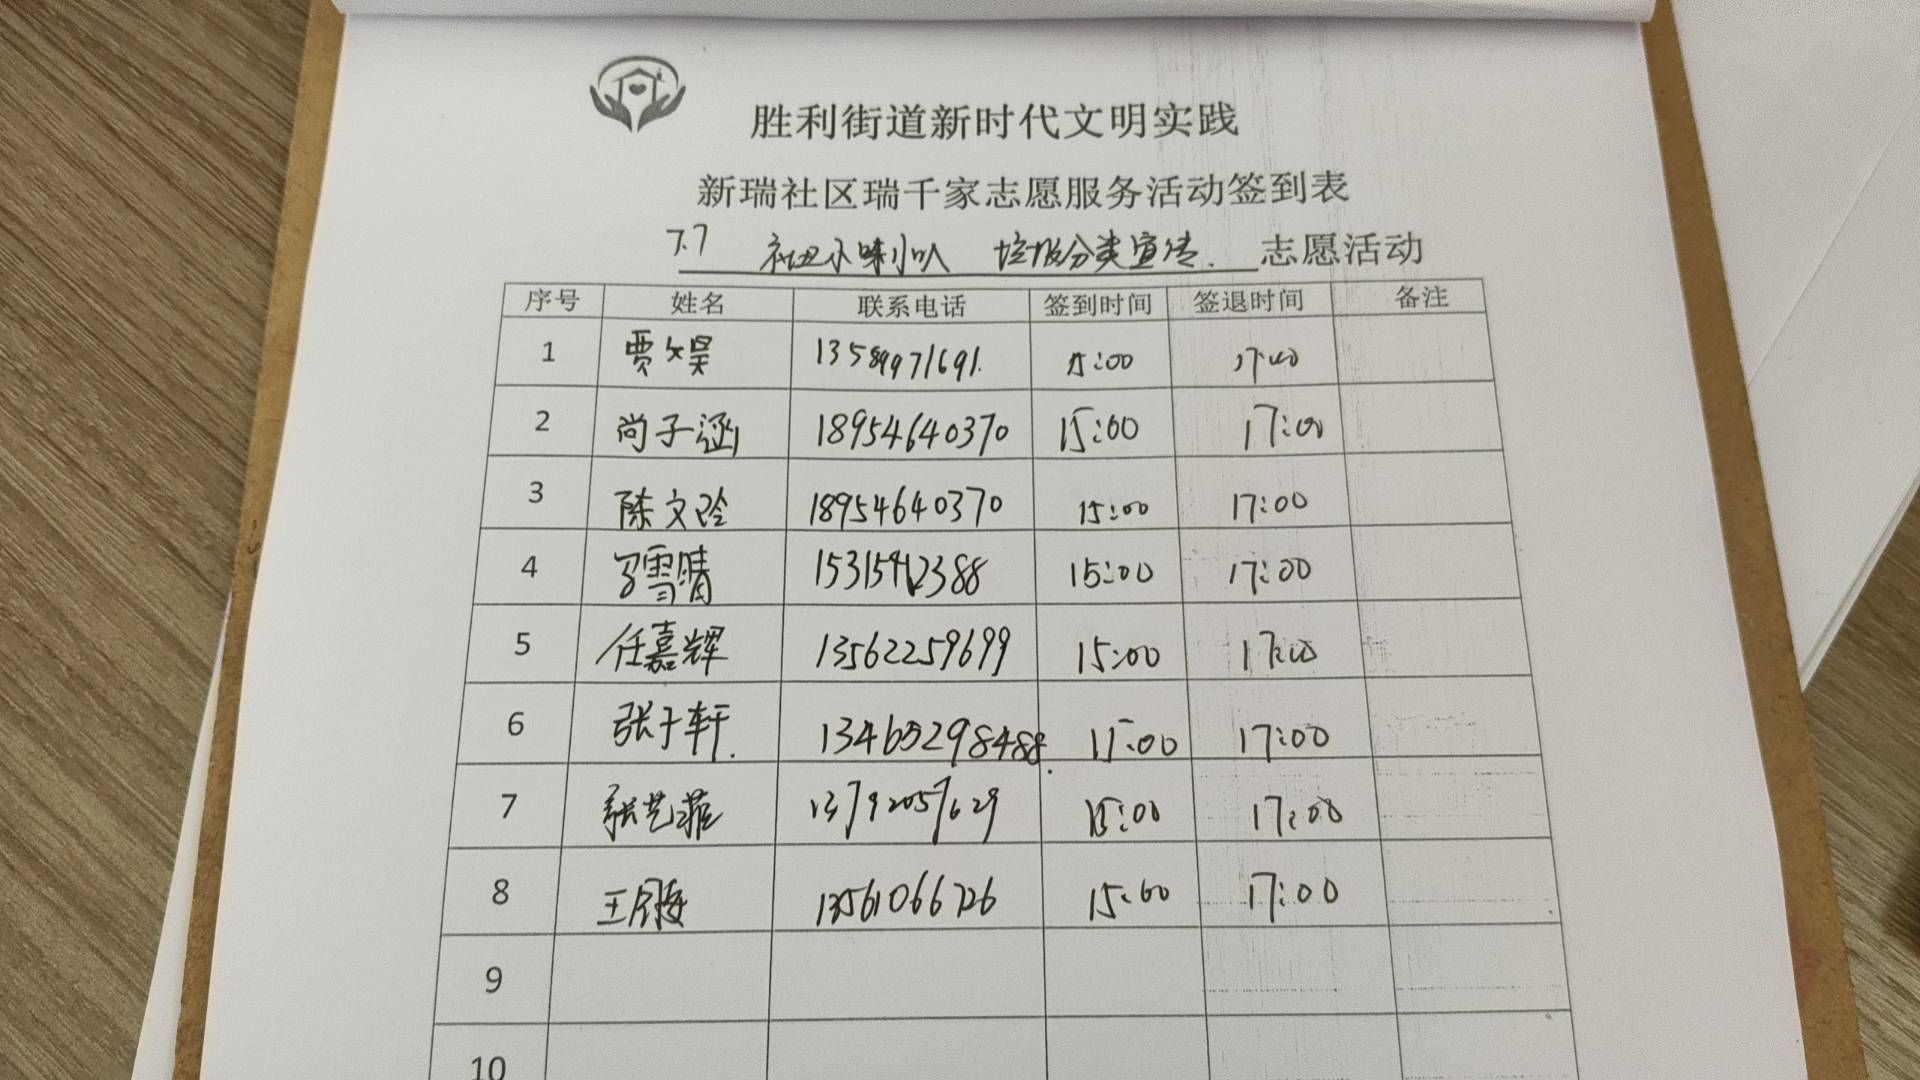 胜利街道新时代文明实践
新瑞社区瑞千家志愿服务活动签到表
7.7 社区小喇叭 垃圾分类宣传. 志愿活动
序号 姓名 联系电话 签到时间 签退时间 备注
1 贾文昊 13589971691. 15:00 17:00
2 尚子涵 18954640370 15:00 17:00
3 陈文玲 18954640370 15:00 17:00
4 雪晴 15315912388 15:00 17:00
5 任嘉辉 13562259699 15:00 17:00
6 张于轩. 13465298488. 15:00 17:00
7 张艺菲 13792057629 15:00 17:00
8 王 13561066726 15:00 17:00
9
10